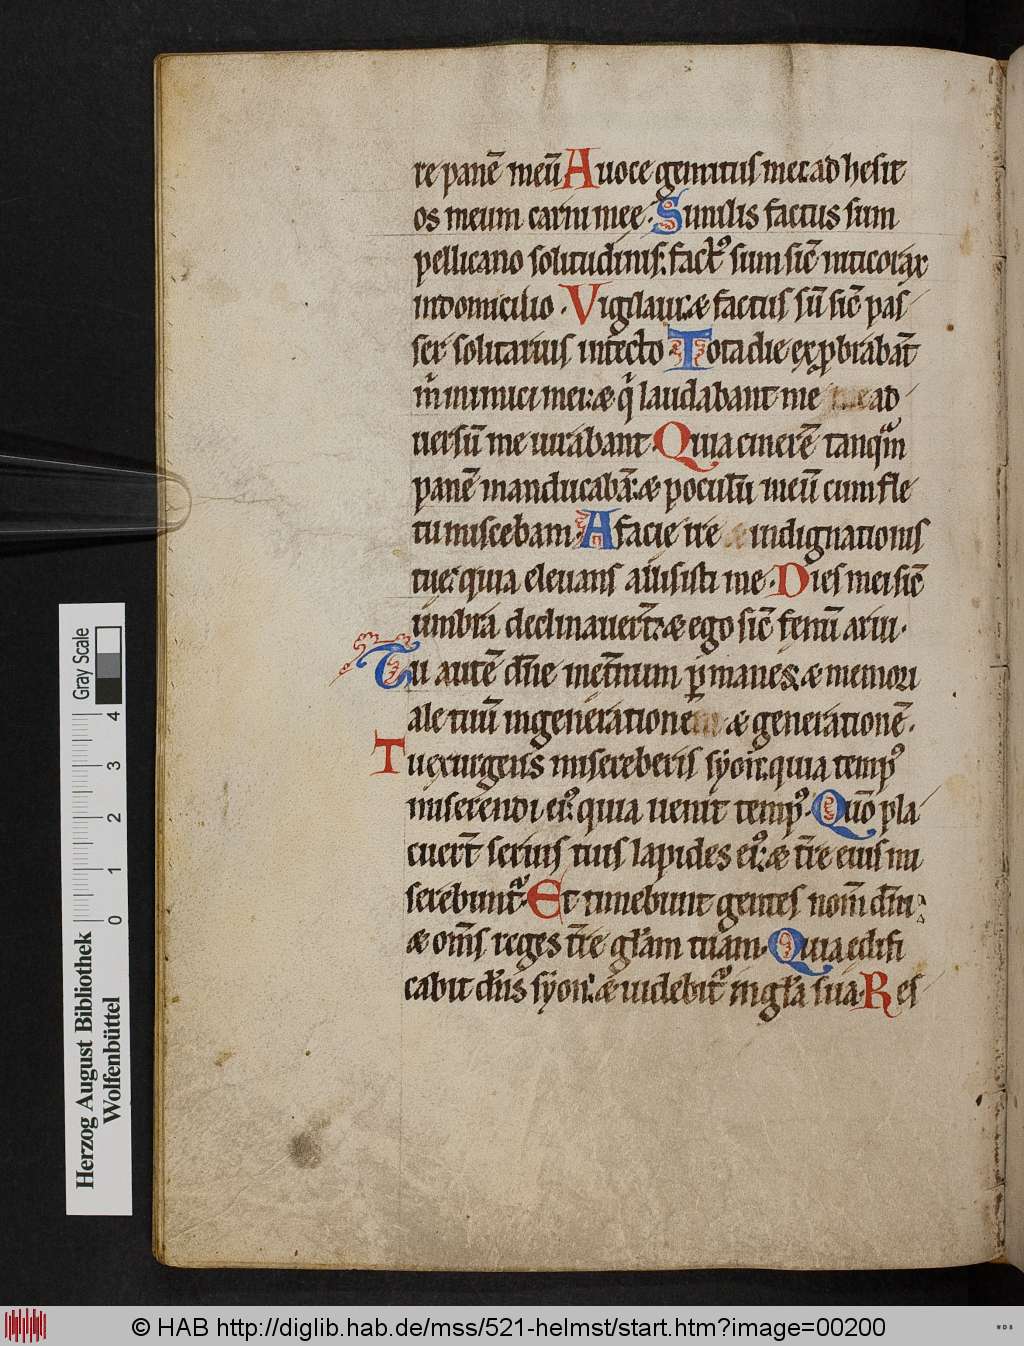 re panē meū A uoce gemitus mei: adhesit
os meum carni mee. Similis factus sum
pellicano solitudinis: factꝰ sum sic̄ niticorax
in domicilio. Vigilaui: & factus sū sic̄ pas-
ser solitarius in tecto Tota die exprobrabāt
m̄ inimici mei: & q̄ laudabant me ad
uersū me iurabant. Quia cinerē tanqͣm
panē manducabā: & poculū meū cum fle
tu miscebam. A facie ire indignationis
tue: quia eleuans allisisti me. Dies mei sic̄
umbra declinauer̄t: & ego sic̄ fenū arui.
Tu autē dn̄e inet̄num ꝑmanes: & memori
ale tuū in generationē & generationē.
Tu exurgens misereberis syon: quia tempꝰ
miserendi eiꝰ: quia uenit tempꝰ. Quō pla
cuer̄t seruis tuis lapides eiꝰ: & t̄re eius mi
serebunt᷑. Et timebunt gentes nom̄ dn̄i:
& om̄s reges t̄re gl̄am tuam. Quia edifi
cabit dn̄s syon: & uidebit᷑ in gl̄a sua. Res
Herzog August Bibliothek
Wolfenbüttel
0 1 2 3 4
Gray Scale
© HAB http://diglib.hab.de/mss/521-helmst/start.htm?image=00200